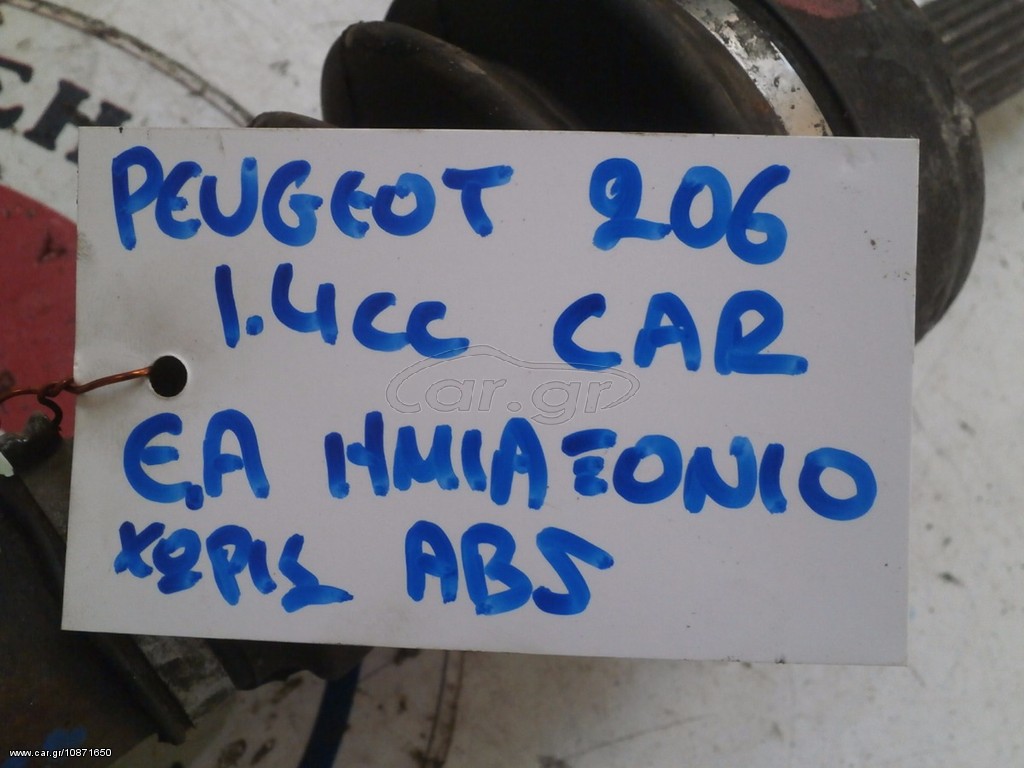 PEUGEOT 206
1.4cc CAR
car.gr
Ε.Α ΗΜΙΑΞΟΝΙΟ
χωρις ABS
www.car.gr/10871650